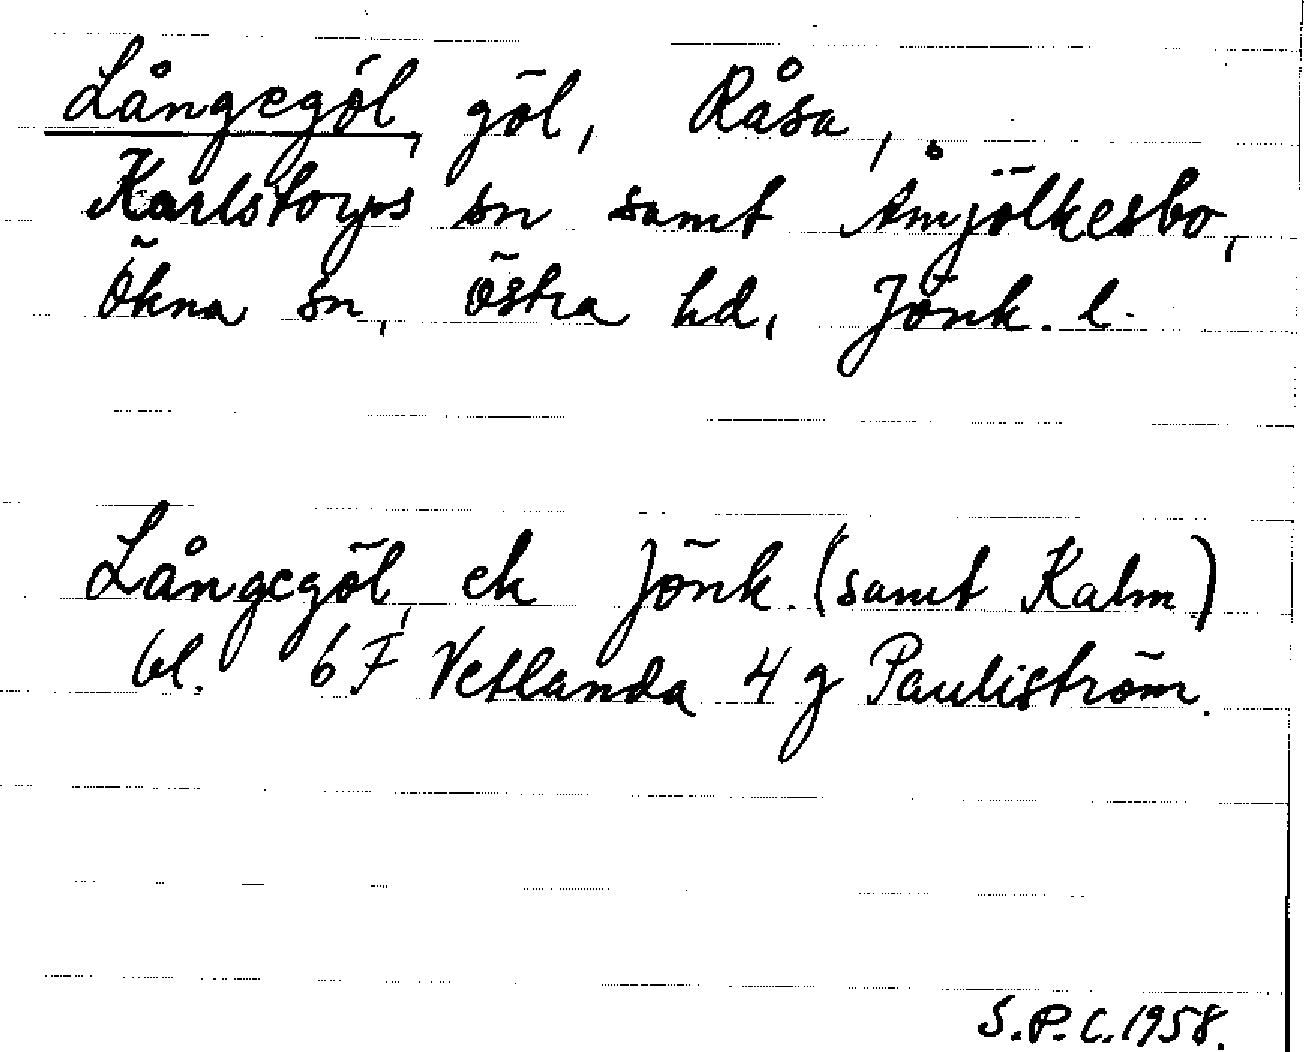 Långegöl, göl, Råsa,
Karlstorps sn samt Åmjölkesbo,
Ökna sn, Östra hd, Jönk. l.
Långegöl, ek Jönk. (samt Kalm)
bl. 6 F Vetlanda 4 g Pauliström.
S.P.C. 1958.